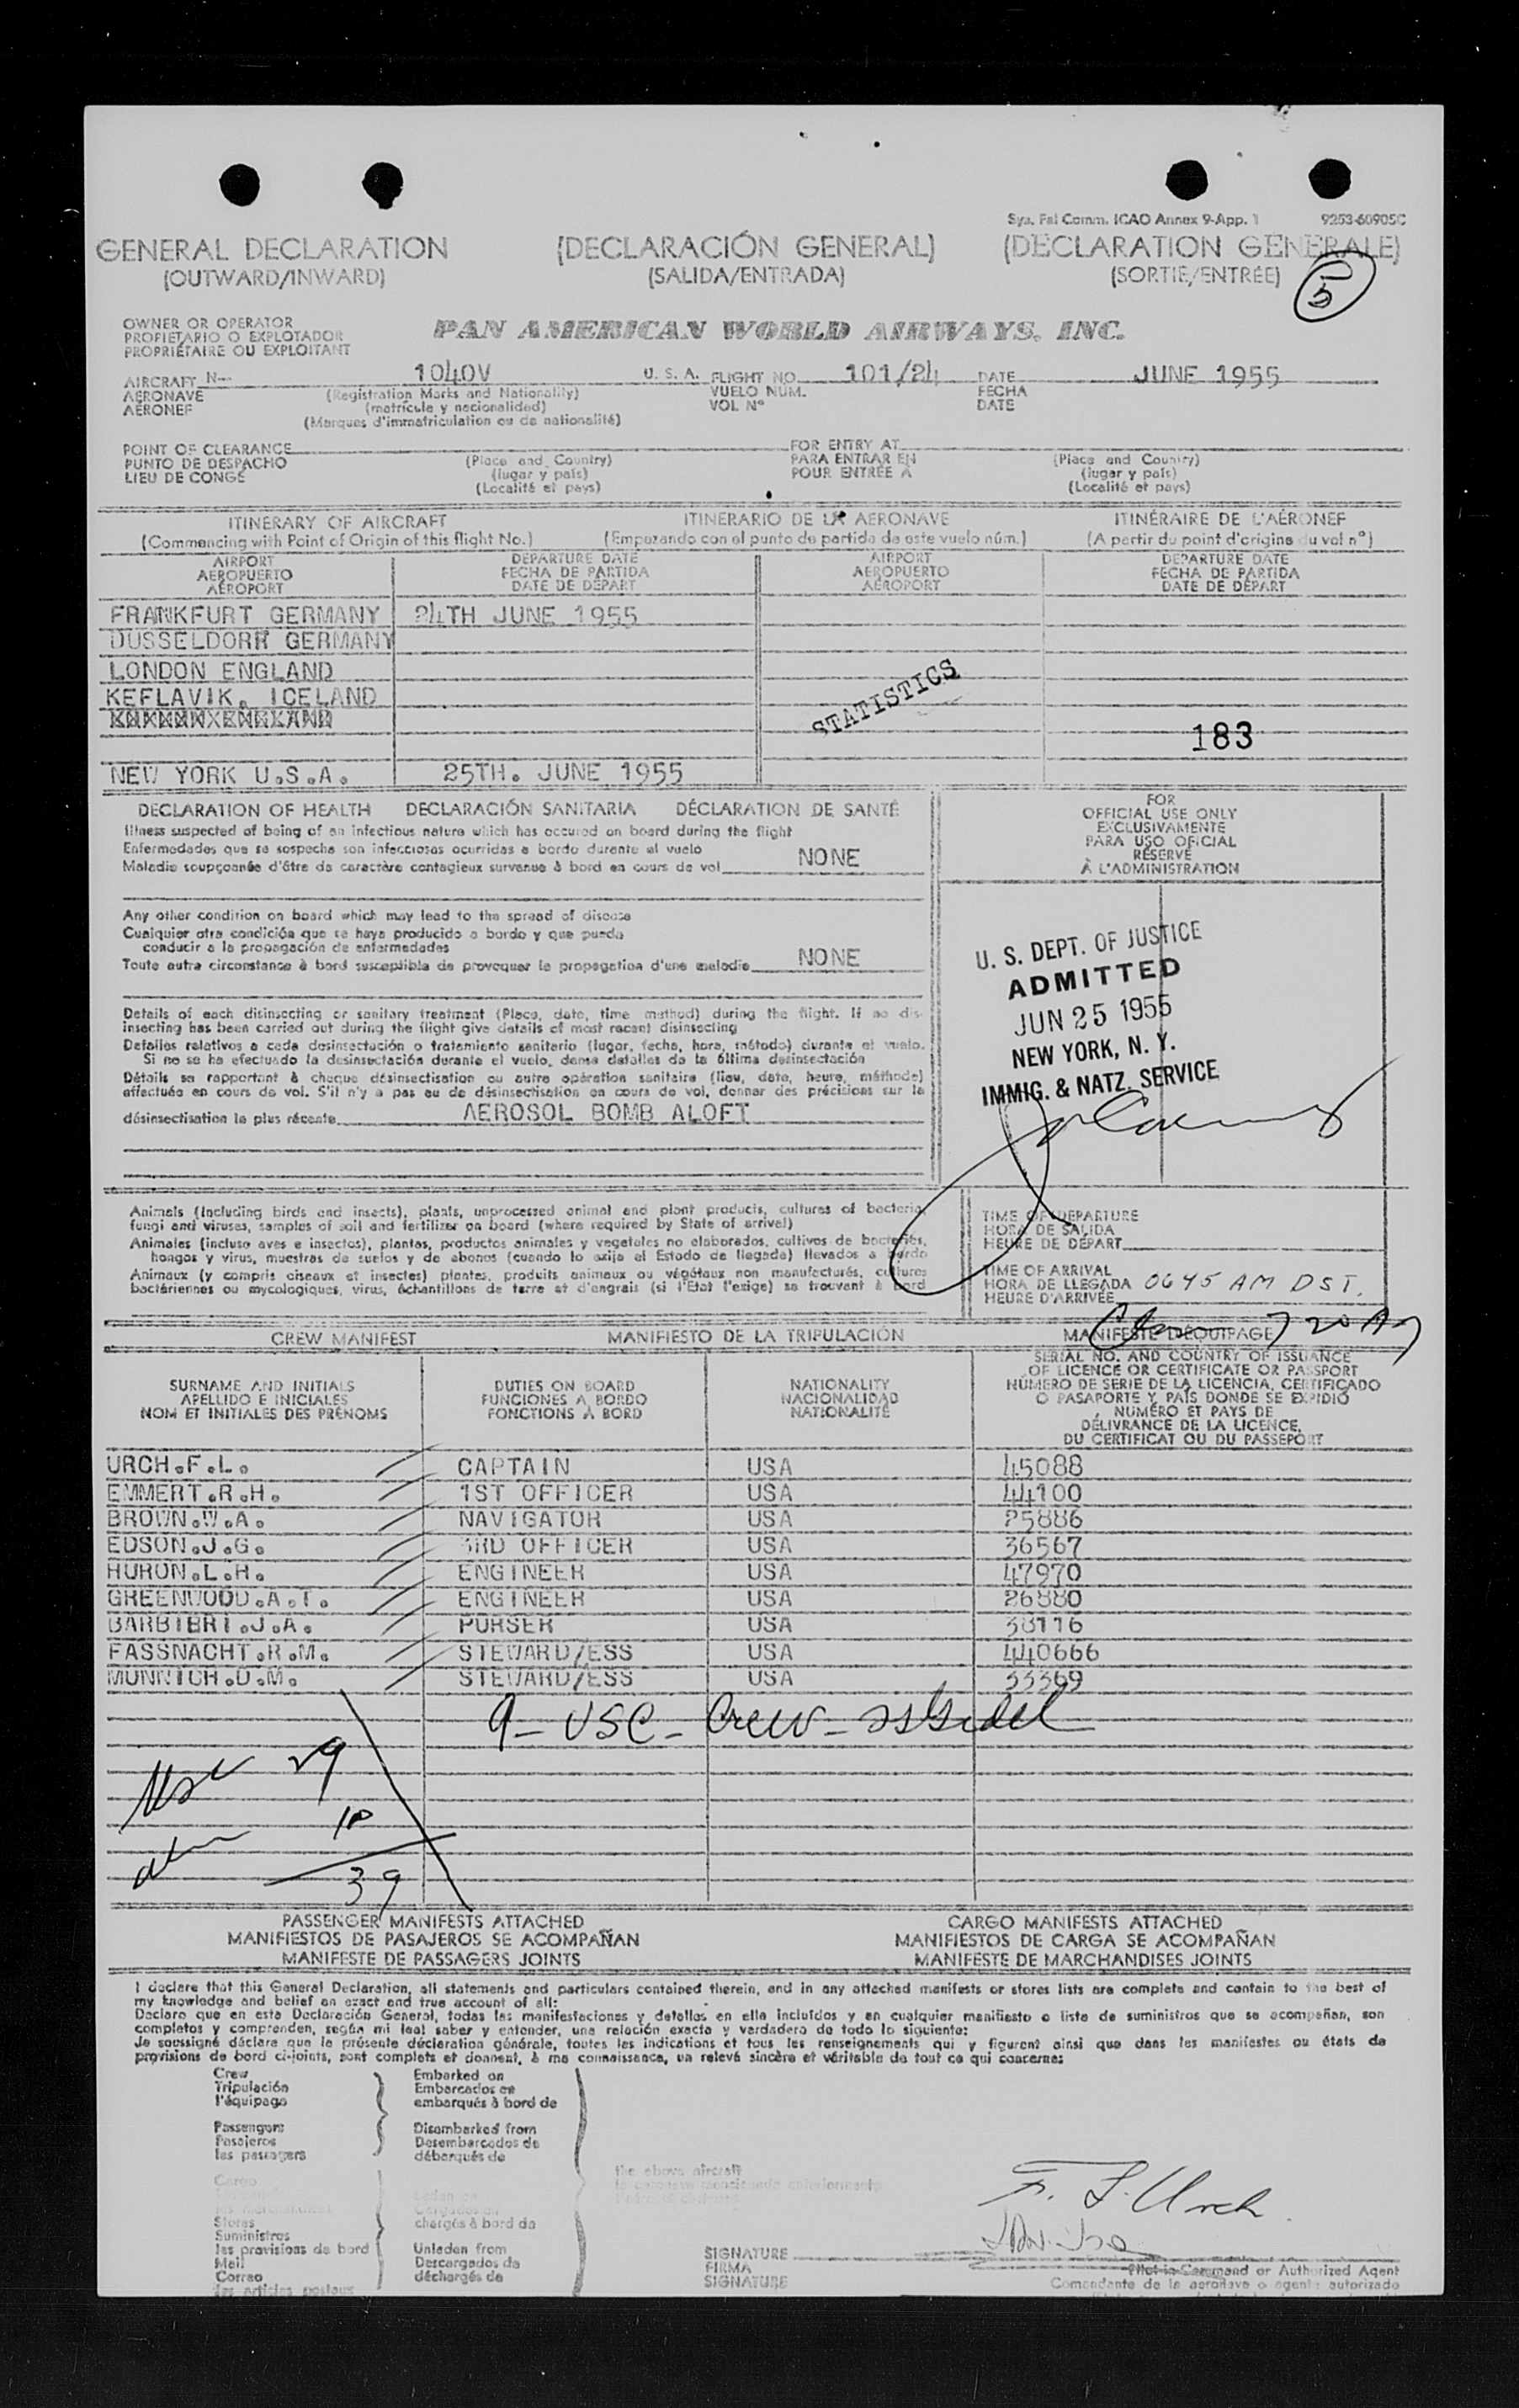 Sys. Fal Comm. ICAO Annex 9-App. 1 9253-60905C
GENERAL DECLARATION (DECLARACIÓN GENERAL) (DÉCLARATION GÉNÉRALE)
(OUTWARD/INWARD) (SALIDA/ENTRADA) (SORTIE/ENTRÉE) 5
OWNER OR OPERATOR
PROPIETARIO O EXPLOTADOR PAN AMERICAN WORLD AIRWAYS, INC.
PROPRIÉTAIRE OU EXPLOITANT
AIRCRAFT N- 1040V U. S. A. FLIGHT NO. 101/24 DATE JUNE 1955
AERONAVE (Registration Marks and Nationality) VUELO NÚM. FECHA
AÉRONEF (matrícula y nacionalidad) VOL Nº DATE
(Marques d'immatriculation ou de nationalité)
POINT OF CLEARANCE FOR ENTRY AT
PUNTO DE DESPACHO (Place and Country) PARA ENTRAR EN (Place and Country)
LIEU DE CONGÉ (lugar y país) POUR ENTRÉE À (lugar y país)
(Localité et pays) (Localité et pays)
ITINERARY OF AIRCRAFT ITINERARIO DE LA AERONAVE ITINÉRAIRE DE L'AÉRONEF
(Commencing with Point of Origin of this flight No.) (Empezando con el punto de partida de este vuelo núm.) (A partir du point d'origine du vol nº)
AIRPORT DEPARTURE DATE AIRPORT DEPARTURE DATE
AEROPUERTO FECHA DE PARTIDA AEROPUERTO FECHA DE PARTIDA
AÉROPORT DATE DE DÉPART AÉROPORT DATE DE DÉPART
FRANKFURT GERMANY 24TH JUNE 1955
DUSSELDORR GERMANY
LONDON ENGLAND
KEFLAVIK. ICELAND
STATISTICS
183
NEW YORK U.S.A. 25TH. JUNE 1955
DECLARATION OF HEALTH DECLARACIÓN SANITARIA DÉCLARATION DE SANTÉ
Illness suspected of being of an infectious nature which has occured on board during the flight
Enfermedades que se sospecha son infecciosas ocurridas a bordo durante el vuelo
Maladie soupçonnée d'être de caractère contagieux survenue à bord en cours de vol NONE
Any other condition on board which may lead to the spread of disease
Cualquier otra condición que se haya producido a bordo y que pueda
conducir a la propagación de enfermedades
Toute autre circonstance à bord susceptible de provoquer la propagation d'une maladie NONE
Details of each disinsecting or sanitary treatment (Place, date, time method) during the flight. If no dis-
insecting has been carried out during the flight give details of most recent disinsecting
Detalles relativos a cada desinsectación o tratamiento sanitario (lugar, fecha, hora, método) durante el vuelo.
Si no se ha efectuado la desinsectación durante el vuelo, dense detalles de la última desinsectación
Détails se rapportant à chaque désinsectisation ou autre opération sanitaire (lieu, date, heure, méthode)
effectuée en cours de vol. S'il n'y a pas eu de désinsectisation en cours de vol, donner des précisions sur la
désinsectisation la plus récente AEROSOL BOMB ALOFT
FOR
OFFICIAL USE ONLY
EXCLUSIVAMENTE
PARA USO OFICIAL
RÉSERVÉ
À L'ADMINISTRATION
U. S. DEPT. OF JUSTICE
ADMITTED
JUN 25 1955
NEW YORK, N. Y.
IMMIG. & NATZ. SERVICE
Animals (including birds and insects), plants, unprocessed animal and plant products, cultures of bacteria,
fungi and viruses, samples of soil and fertilizer on board (where required by State of arrival)
Animales (incluso aves e insectos), plantas, productos animales y vegetales no elaborados, cultivos de bacterias,
hongos y virus, muestras de suelos y de abonos (cuando lo exija el Estado de llegada) llevados a bordo
Animaux (y compris oiseaux et insectes) plantes, produits animaux ou végétaux non manufacturés, cultures
bactériennes ou mycologiques, virus, échantillons de terre et d'engrais (si l'État l'exige) se trouvant à bord
TIME OF DEPARTURE
HORA DE SALIDA
HEURE DE DÉPART
TIME OF ARRIVAL
HORA DE LLEGADA 0645 AM DST.
HEURE D'ARRIVÉE
CREW MANIFEST MANIFIESTO DE LA TRIPULACIÓN MANIFESTE D'ÉQUIPAGE
SURNAME AND INITIALS DUTIES ON BOARD NATIONALITY SERIAL NO. AND COUNTRY OF ISSUANCE
APELLIDO E INICIALES FUNCIONES A BORDO NACIONALIDAD OF LICENCE OR CERTIFICATE OR PASSPORT
NOM ET INITIALES DES PRÉNOMS FONCTIONS À BORD NATIONALITÉ NÚMERO DE SERIE DE LA LICENCIA, CERTIFICADO
O PASAPORTE Y PAÍS DONDE SE EXPIDIÓ
NUMÉRO ET PAYS DE
DÉLIVRANCE DE LA LICENCE,
DU CERTIFICAT OU DU PASSEPORT
URCH.F.L. CAPTAIN USA 45088
EMMERT.R.H. 1ST OFFICER USA 44100
BROWN.W.A. NAVIGATOR USA 25886
EDSON.J.G. 3RD OFFICER USA 36567
HURON.L.H. ENGINEER USA 47970
GREENWOOD.A.T. ENGINEER USA 26880
BARBIERI.J.A. PURSER USA 38116
FASSNACHT.R.M. STEWARD/ESS USA 440666
MUNNICH.D.M. STEWARD/ESS USA 33369
9 - USC - Crew -
29
10
39
PASSENGER MANIFESTS ATTACHED CARGO MANIFESTS ATTACHED
MANIFIESTOS DE PASAJEROS SE ACOMPAÑAN MANIFIESTOS DE CARGA SE ACOMPAÑAN
MANIFESTE DE PASSAGERS JOINTS MANIFESTE DE MARCHANDISES JOINTS
I declare that this General Declaration, all statements and particulars contained therein, and in any attached manifests or stores lists are complete and contain to the best of
my knowledge and belief an exact and true account of all:
Declaro que en esta Declaración General, todas las manifestaciones y detalles en ella incluídos y en cualquier manifiesto o lista de suministros que se acompañan, son
completos y comprenden, según mi leal saber y entender, una relación exacta y verdadera de todo lo siguiente:
Je soussigné déclare que la présente déclaration générale, toutes les indications et tous les renseignements qui y figurent ainsi que dans les manifestes ou états de
provisions de bord ci-joints, sont complets et donnent, à ma connaissance, un relevé sincère et véritable de tout ce qui concerne:
Crew Embarked on
Tripulación Embarcados en
l'équipage embarqués à bord de
Passengers Disembarked from
Pasajeros Desembarcados de
les passagers débarqués de
Cargo the above aircraft
Stores chargés à bord de
Suministros
les provisions de bord Unladen from
Mail Descargados de
Correo déchargés de
les articles postaux
F. L. Urch
SIGNATURE
FIRMA Pilot in Command or Authorized Agent
SIGNATURE Comandante de la aeronave o agente autorizado